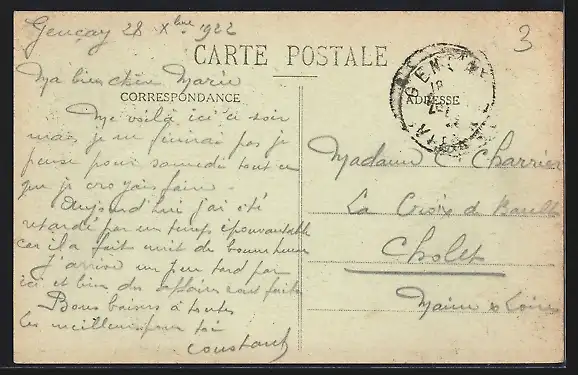 Gençay 28 Xbre 1922
3
CARTE POSTALE
Ma bien chère Marie
CORRESPONDANCE
ADRESSE
GENÇAY
Me voilà ici ce soir
mais je ne finirai pas je
pense pour samedi tout ce
que je croyais faire.
Aujourd'hui j'ai été
retardé par un temps épouvantable
car il a fait nuit de bonne heure
J'arrive un peu tard par
ici et bien des affaires sont faites
Bons baisers à toutes
les meilleurs pour toi
Constant
Madame C Charrier
La Croix de
Cholet
Maine & Loire